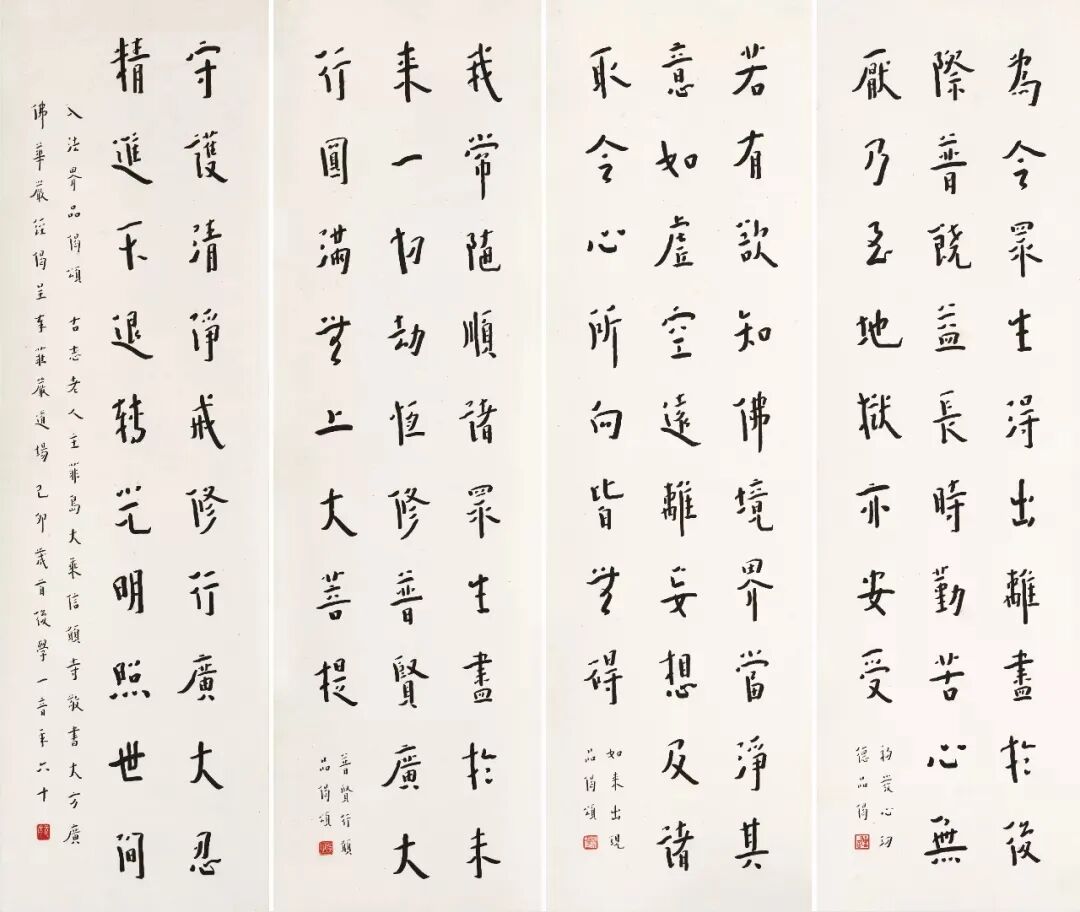 為令眾生得出離盡於後
際普饒益長時勤苦心無
厭乃至地獄亦安受
初發心功
德品偈
若有欲知佛境界當淨其
意如虛空遠離妄想及諸
取令心所向皆無碍
如來出現
品偈頌
我常隨順諸眾生盡於未
來一切劫恆修普賢廣大
行圓滿無上大菩提
普賢行願
品偈頌
守護清淨戒修行廣大忍
精進不退轉光明照世間
入法界品偈頌 老人主菲島大乘信願寺敬書大方廣
佛華嚴經偈呈奉莊嚴道場 己卯歲首後學一音年六十